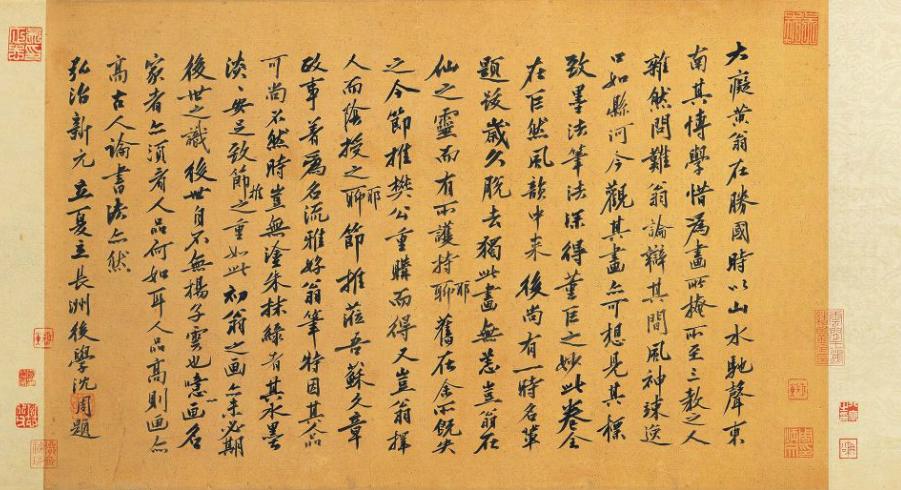 大癡黃翁在勝國時以山水馳聲東
南其博學惜為畫所掩所至三教之人
雜然問難翁論辯其間風神竦逸
口如縣河今觀其畫亦可想見其標
致墨法筆法深得董巨之妙此卷全
在巨然風韻中来後尚有一時名輩
題跋歲久脫去獨此畫無恙豈翁在
仙之靈而有所護持耶聊舊在余所既失
之今節推樊公重購而得又豈翁擇
人而陰授之耶聊節推蒞吾蘇文章
政事著為名流雅好翁筆特因其人品
可尚不然時豈無塗朱抹綠者其水墨
淡淡安足致節推之重如此初翁之画亦未必期
後世之識後世自不無揚子雲也噫画名
家者亦須看人品何如耳人品高則画亦
高古人論書法亦然
弘治新元立夏立長洲後學沈周題